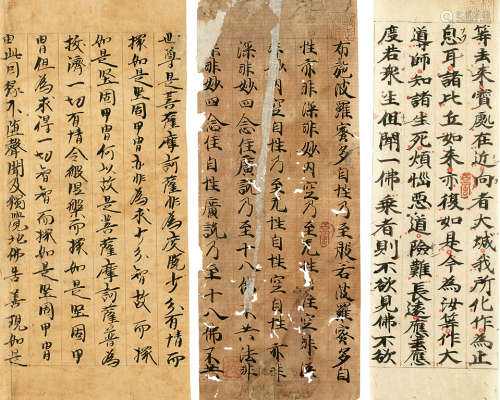 等去来寶處在近向者大城我所化作為止
息耳諸比丘如来亦復如是今為汝等作大
導師知諸生死煩惱惡道險難長遠應去應
度若衆生但聞一佛乗者則不欲見佛不欲
布施波羅蜜多自性乃至般若波羅蜜多自
性亦非深非妙内空乃至无性自性空非深
非妙内空自性乃至无性自性空自性亦非
深非妙四念住廣說乃至十八佛不共法非
深非妙四念住自性廣說乃至十八佛不共
世尊是菩薩摩訶薩非為度脱少分有情而
擐如是堅固甲冑亦非為求少分智故而擐
如是堅固甲冑何以故是菩薩摩訶薩普為
拔濟一切有情令般涅槃而擐如是堅固甲
冑但為求得一切智智而擐如是堅固甲冑
由此因緣不墮聲聞及獨覺地佛告善現如是